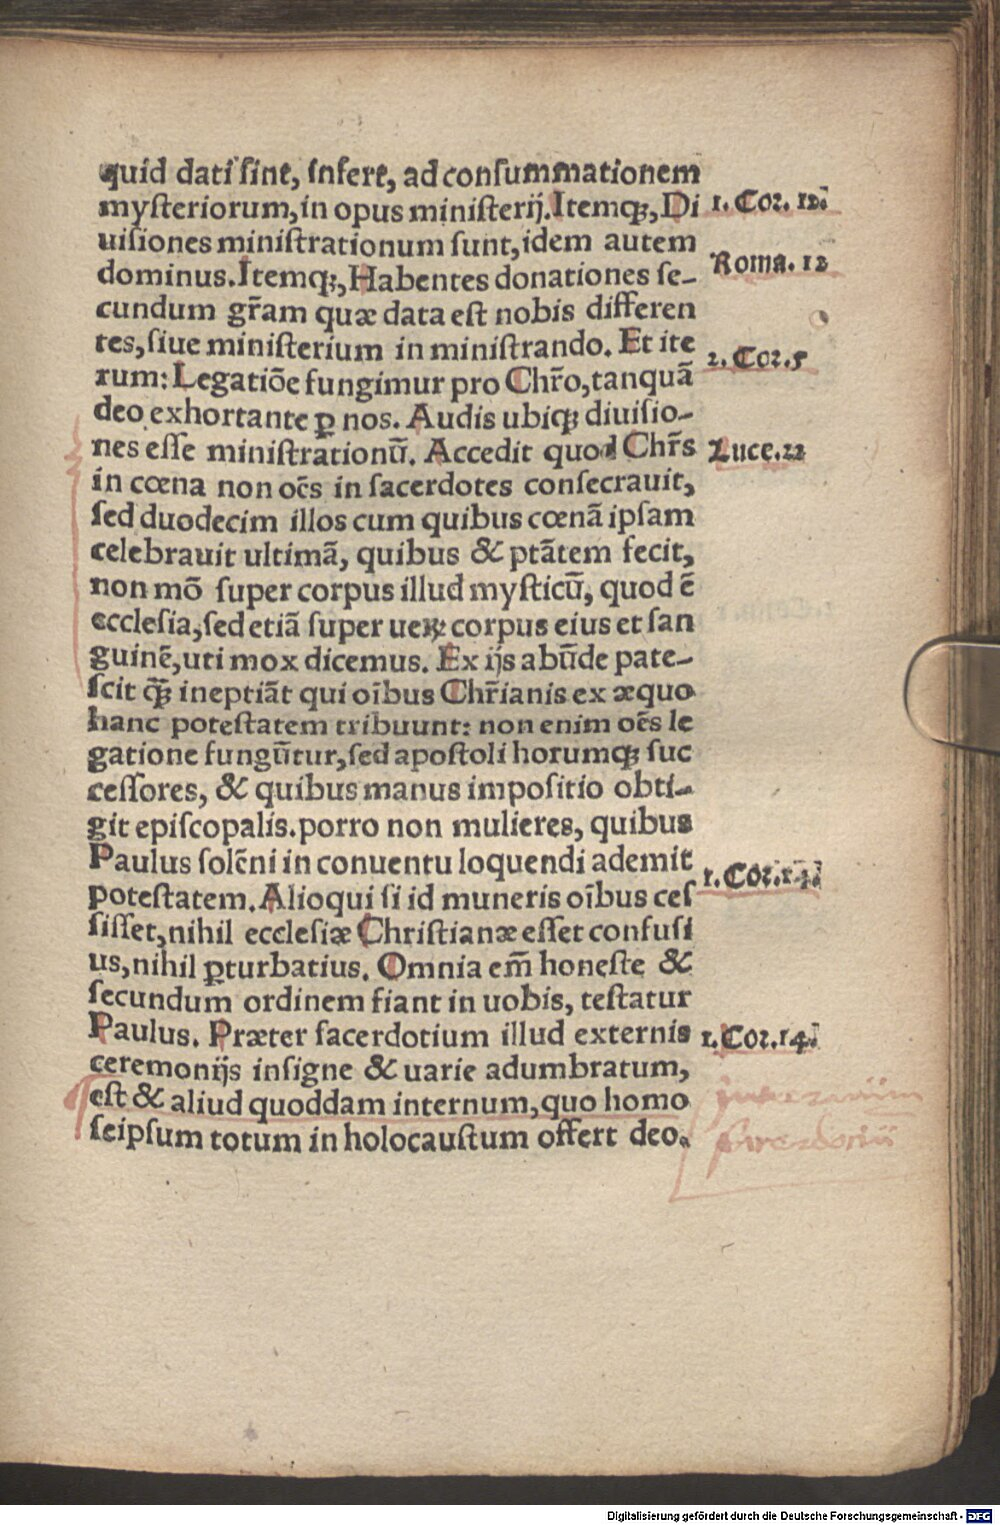 quid dati sint, inſert, ad conſummationem
myſteriorum, in opus miniſterij. Itemq;, Di
uiſiones miniſtrationum ſunt, idem autem
dominus. Itemq;, Habentes donationes ſe-
cundum gr̃am quæ data eſt nobis differen
tes, ſiue miniſterium in miniſtrando. Et ite
rum: Legatiõe fungimur pro Chr̃o, tanquã
deo exhortante ꝑ nos. Audis ubiq; diuiſio-
nes eſſe miniſtrationũ. Accedit quod Chr̃s
in cœna non oẽs in ſacerdotes conſecrauit,
ſed duodecim illos cum quibus cœnã ipſam
celebrauit ultimã, quibus & ptãtem fecit,
non mõ ſuper corpus illud myſticũ, quod ẽ
eccleſia, ſed etiã ſuper ueꝝ corpus eius et ſan
guinẽ, uti mox dicemus. Ex ijs abũde pate-
ſcit q̃; ineptiãt qui oĩbus Chr̃ianis ex æquo
hanc poteſtatem tribuunt: non enim oẽs le
gatione fungũtur, ſed apoſtoli horumq; ſuc
ceſſores, & quibus manus impoſitio obti-
git epiſcopalis. porro non mulieres, quibus
Paulus ſolẽni in conuentu loquendi ademit
poteſtatem. Alioqui ſi id muneris oĩbus ceſ
ſiſſet, nihil eccleſiæ Chriſtianæ eſſet confuſi
us, nihil ꝑturbatius. Omnia em̃ honeſte &
ſecundum ordinem fiant in uobis, teſtatur
Paulus. Præter ſacerdotium illud externis
ceremonijs inſigne & uarie adumbratum,
eſt & aliud quoddam internum, quo homo
ſeipſum totum in holocauſtum offert deo.
1. Cor. 12.
Roma. 12
2. Cor. 5
Luce. 22
1. Cor. 14.
1. Cor. 14.
Digitalisierung gefördert durch die Deutsche Forschungsgemeinschaft - DFG